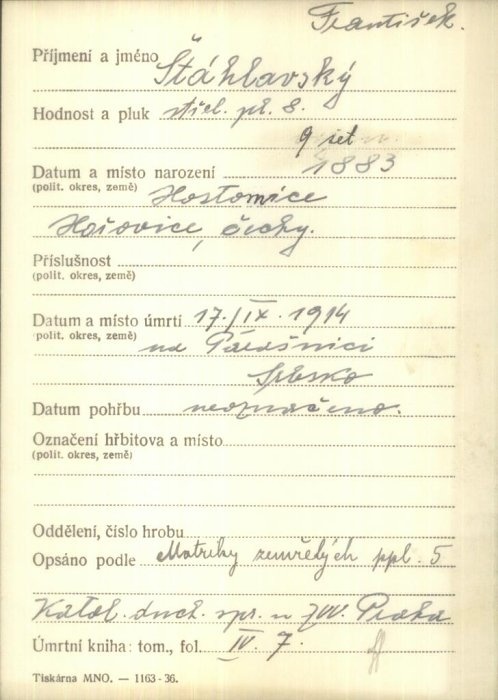 František.
Příjmení a jméno Šťáhlavský
Hodnost a pluk střel. pl. 8.
9 set.
Datum a místo narození 1883
(polit. okres, země) Hostomice
Hořovice, Čechy.
Příslušnost
(polit. okres, země)
Datum a místo úmrtí 17./IX. 1914
(polit. okres, země) na
Srbsko
Datum pohřbu neoznačeno.
Označení hřbitova a místo
(polit. okres, země)
Oddělení, číslo hrobu
Opsáno podle Matriky zemřelých ppl. 5
Katol. duch. spr. u ZVV. Praha
Úmrtní kniha: tom., fol. IV. 7.
Tiskárna MNO. — 1163-36.